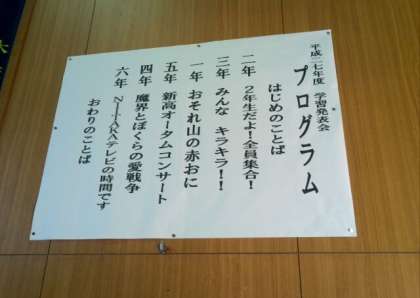 平成二七年度 学習発表会
プログラム
はじめのことば
二年 2年生だよ!全員集合!
三年 みんな キラキラ!!
一年 おそれ山の赤おに
五年 新高オータムコンサート
四年 魔界とぼくらの愛戦争
六年 NIITAKAテレビの時間です
おわりのことば